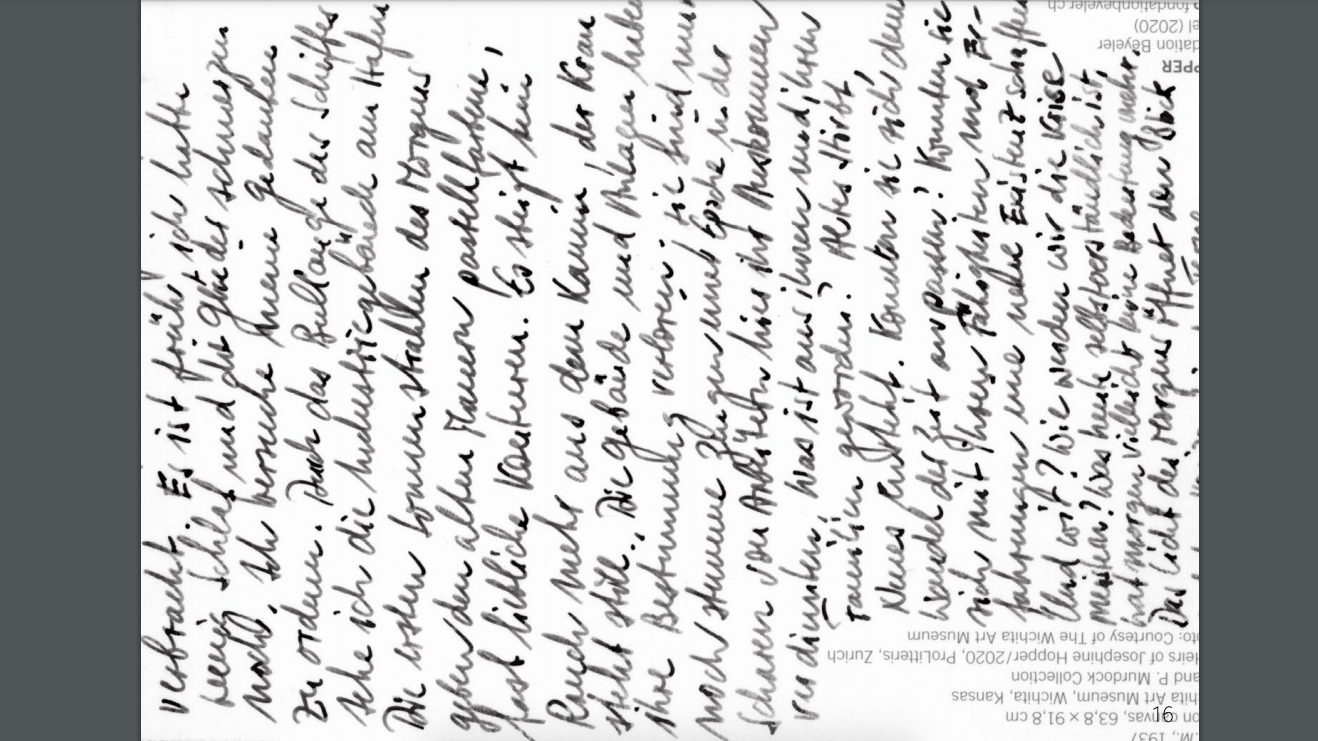 verbracht. Es ist früh, ich hatte
wenig Schlaf und die Glieder schmerzen
noch. Ich versuche meine Gedanken
zu ordnen. Durch das Bullauge des Schiffes
sehe ich die Industriegebäude am Hafen
Die ersten Sonnenstrahlen des Morgens
geben den alten Mauern pastellfarbene,
fast liebliche Konturen. Es steigt kein
Rauch mehr aus dem Kamin, der Kran
steht still. Die Gebäude und Anlagen haben
ihre Bestimmung verloren, sie sind nur
noch stumme Zeugen einer Epoche in der
Scharen von Arbeitern hier ihr Auskommen
verdienten. Was ist aus ihnen und ihren
Familien geworden? Altes stirbt,
Neues entsteht. Konnten sie sich dem
Wandel der Zeit anpassen? Konnten sie
sich mit ihren Fähigkeiten und Er-
fahrungen eine neue Existenz schaffen
Und wir? Wie werden wir die Krise
meistern? Was heute selbstverständlich ist,
hat morgen vielleicht keine Bedeutung mehr.
Das Licht des Morgens öffnet den Blick
M., 1937
on canvas, 63,8 × 91,8 cm
hita Art Museum, Wichita, Kansas
and P. Murdock Collection
Heirs of Josephine Hopper/2020, ProLitteris, Zurich
oto: Courtesy of The Wichita Art Museum
PPER
dation Beyeler
el (2020)
fondationbeyeler.ch
16